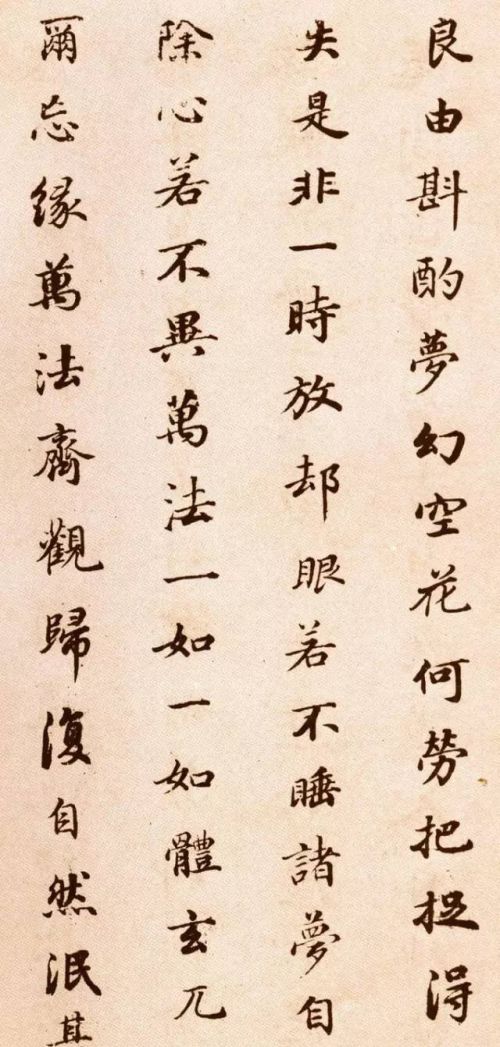 良由斟酌夢幻空花何勞把捉得
失是非一時放却眼若不睡諸夢自
除心若不異萬法一如一如體玄兀
爾忘緣萬法齊觀歸復自然泯其